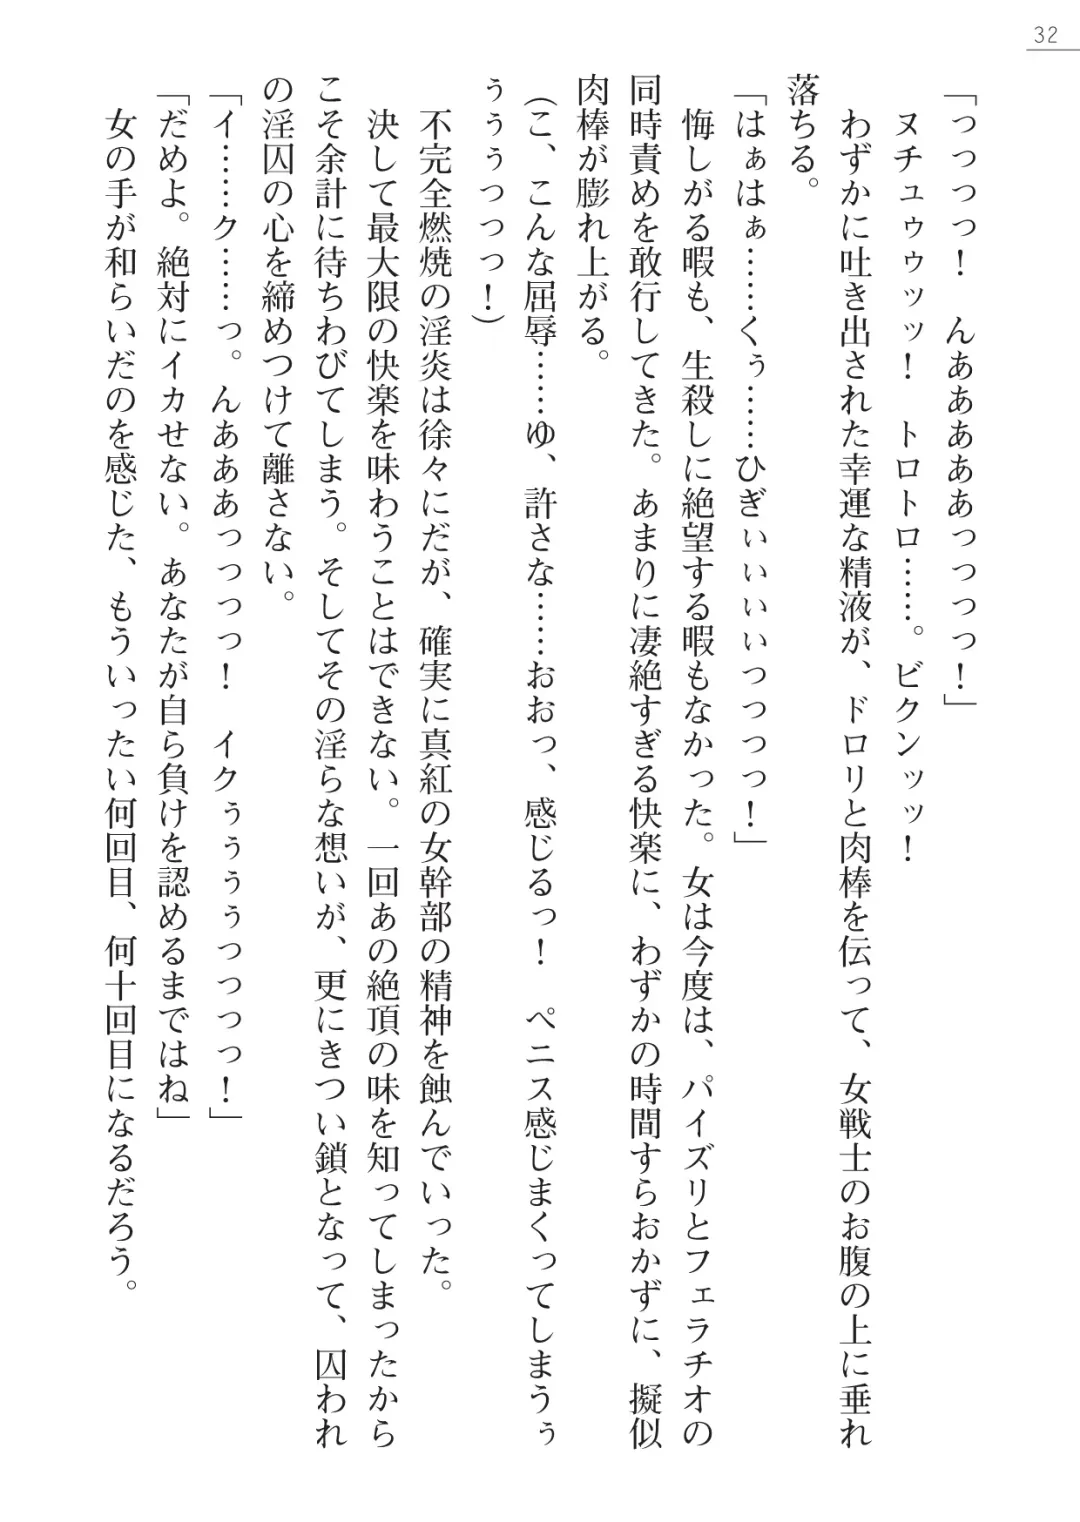 32
「っっっっ！　んああああぁっっっっ！」
　ヌチュゥゥッッ！　トロトロ……。ビクンッッ！
　わずかに吐き出された幸運な精液が、ドロリと肉棒を伝って、女戦士のお腹の上に垂れ
落ちる。
「はぁはぁ……くぅ……ひぎぃぃぃぃっっっっ！」
　悔しがる暇も、生殺しに絶望する暇もなかった。女は今度は、パイズリとフェラチオの
同時責めを敢行してきた。あまりに凄絶すぎる快楽に、わずかの時間すらおかずに、擬似
肉棒が膨れ上がる。
（こ、こんな屈辱……ゆ、許さな……おおっ、感じるっ！　ペニス感じまくってしまうぅ
ぅぅぅっっっ！）
　不完全燃焼の淫炎は徐々にだが、確実に真紅の女幹部の精神を蝕んでいった。
　決して最大限の快楽を味わうことはできない。一回あの絶頂の味を知ってしまったから
こそ余計に待ちわびてしまう。そしてその淫らな想いが、更にきつい鎖となって、囚われ
の淫囚の心を締めつけて離さない。
「イ……ク……っ。んあああっっっっ！　イクぅぅぅぅっっっっ！」
「だめよ。絶対にイカせない。あなたが自ら負けを認めるまではね」
　女の手が和らいだのを感じた、もういったい何回目、何十回目になるだろう。